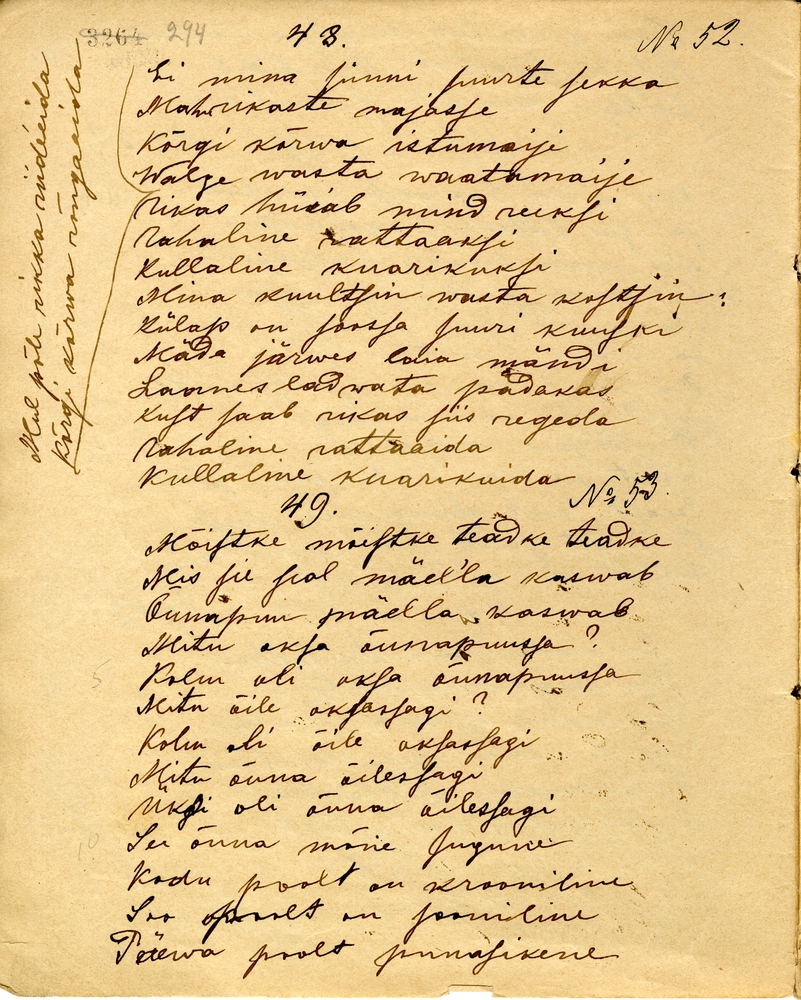 3264 294
48. № 52.
Ei mina sünni suurte sekka
Mahu rikaste majasse
Kõrgi kõrwa istumaije
Walge wasta waatamaije
Rikas hüiab mind reeksi
Rahaline rattaaksi
Kullaline kuarikuksi
Mina kuultsin wasta kostsin:
Külap on soossa suuri kuuski
Mäda järwes laia mändi
Laanes ladwata pädakas
Kust saab rikas siis regeda
Rahaline rattaaida
Kullaline kuarikuida
Mul põle rikka riideeida
Kõrgi kõrwa rõngaaida
49. № 53.
Mõistke mõistke teadke teadke
Mis sie seal mäella kaswab
Õunapuu mäella kaswab
Mitu oksa õunapuussa?
Kolm oli oksa õunapuussa
5
Mitu õile oksassagi?
Kolm oli õile oksassagi
Mitu õuna õilessagi
Üksi oli õuna õilessagi
See õuna mõne sugune
10
Kodu poolt on krooniline
Soo poolt on sooniline
Päewa poolt punasikene